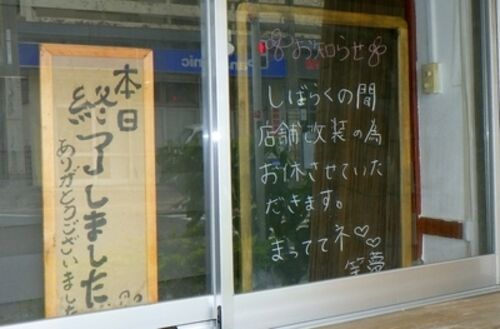 本日
終了しました
ありがとうございました
お知らせ
しばらくの間
店舗改装の為
お休させていた
だきます。
まっててネ♡♡
笑夢
Panasonic